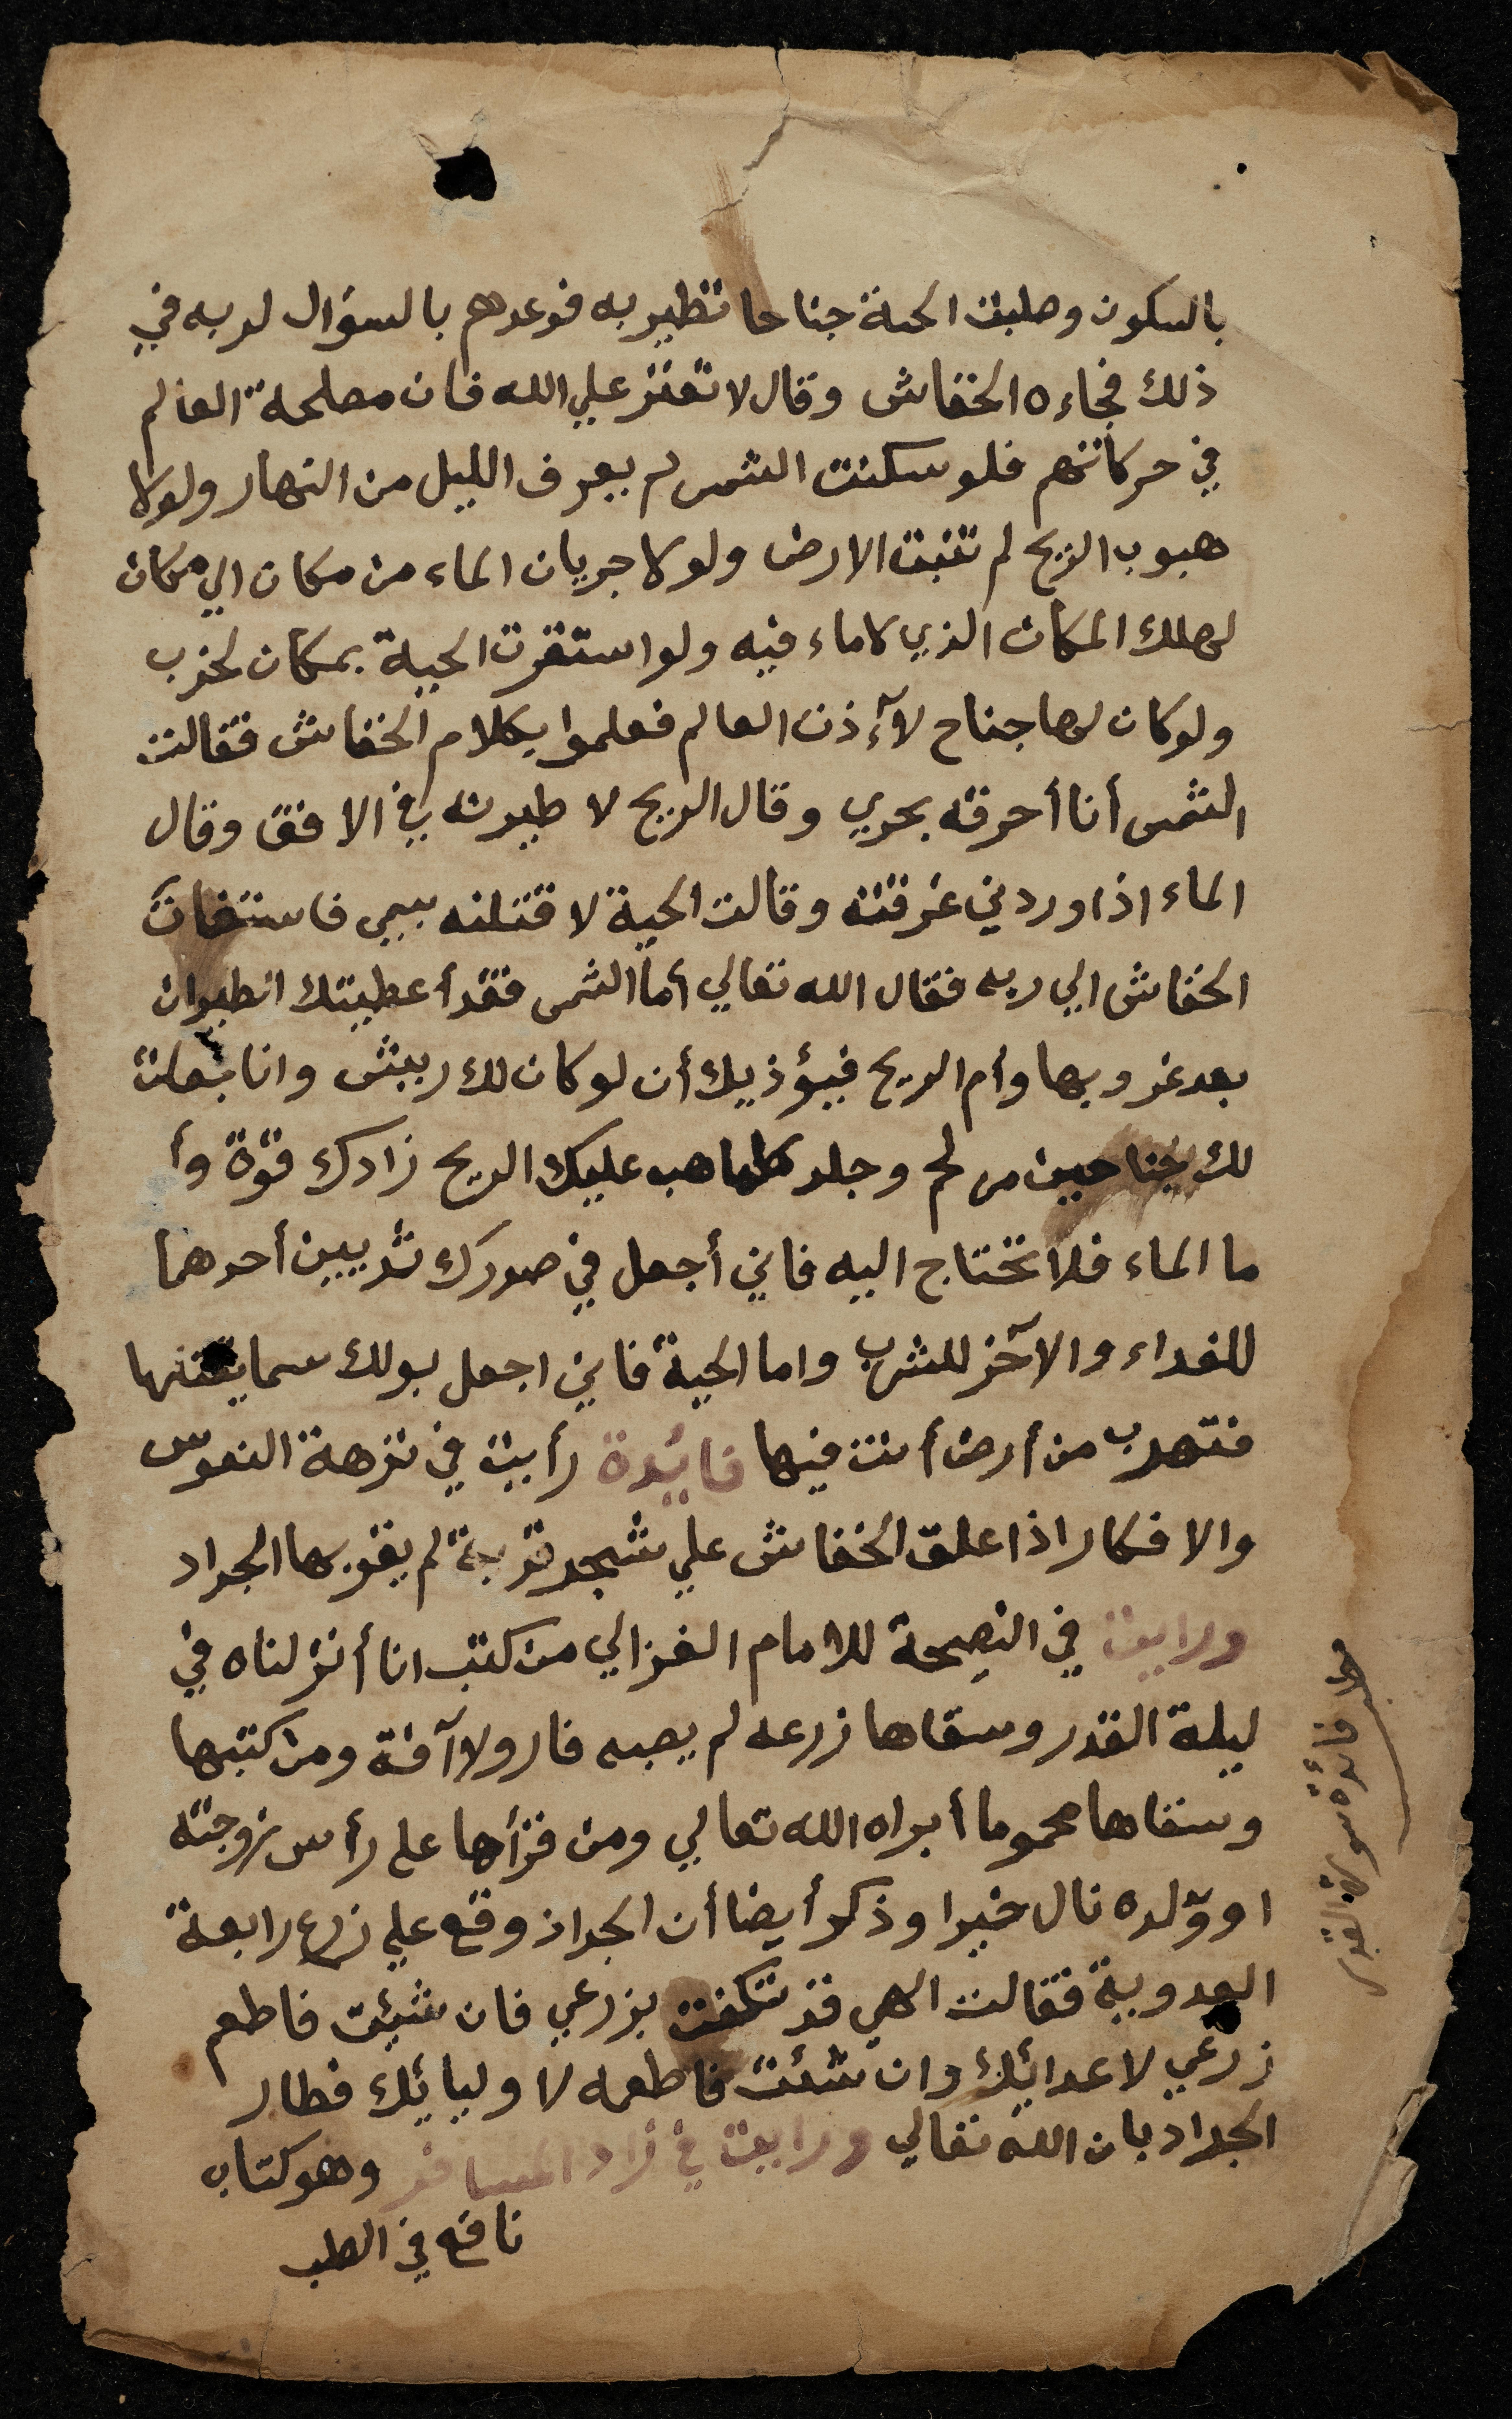 بالسكون وطلبت الحية جناحا تطير به فوعدهم بالسؤال لربه في
ذلك فجاءه الخفاش وقال لا تعتز علي الله فان مصلحة العالم
في حركاتهم فلو سكنت الشمس لم يعرف الليل من النهار ولولا
هبوب الريح لم تنبت الارض ولولا جريان الماء من مكان الي مكان
لهلك المكان الذي لا ماء فيه ولو استقرت الحية بمكان لخرب
ولو كان لها جناح لآءذت العالم فعلموا بكلام الخفاش فقالت
الشمس أنا أحرقه بحري وقال الريح لا طيرنه في الافق وقال
الماء اذا وردني غرقته وقالت الحية لا قتلنه بسمي فاستغاث
الخفاش الي ربه فقال الله تعالي أما الشمس فقد أعطيتك الطيران
بعد غروبها وأم الريح فيؤذيك أن لو كان لك ريش وانا
لك جناحين من لحم وجلد كلما هب عليك الريح زادك قوة وأ
ما الماء فلا تحتاج اليه فاني أجعل في صدرك ثديين أحدهما
للغداء والآخر للشرب واما الحية فاني اجعل بولك سما يقتلها
فتهرب من أرض أنت فيها فايدة رأيت في نزهة النفوس
والافكار اذا علق الخفاش علي شجر قرية لم يقربها الجراد
ورايت في النصيحة للامام الغزالي من كتب انا أنزلناه في
ليلة القدر وسقاها زرعه لم يصبه فار ولا آفة ومن كتبها
وسقاها محموما أبراه الله تعالي ومن قرأها على رأس زوجته
او ولده نال خيرا وذكر أيضا أن الجراد وقع علي زرع رابعة
العدوية فقالت الهي قد تكفت بزرعي فان شيئت فاطعم
زرعي لاعدائك وان شئت فاطعمه لا وليائك فطار
الجراد باذن الله تعالي ورايت في زاد المسافر وهو كتاب
نافع في الطب
فائدة سورة القدر